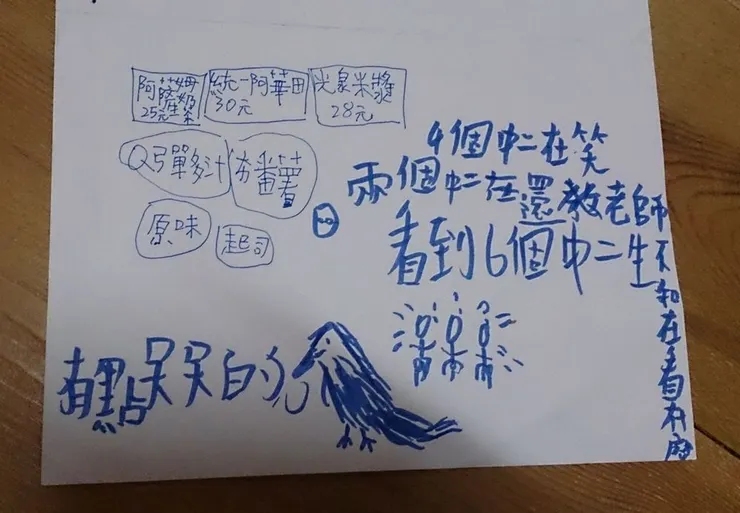 阿薩姆
奶茶
25元
統一阿華田
30元
光泉米漿
28元
Q弓單多汁
夯番薯
原味
起司
4個中二在笑
兩個中二在還教老師
看到6個中二生不知在看什麼
有點呆呆的